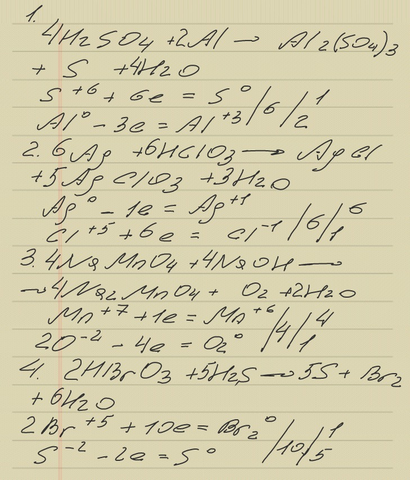 1.
4H2SO4 +2Al → Al2(SO4)3
+ S +4H2O
S +6 + 6e = S 0 / 6 / 1
Al 0 - 3e = Al +3 / / 2
2. 6Ag +6HClO3 → AgCl
+5AgClO3 +3H2O
Ag 0 - 1e = Ag +1 / 6 / 6
Cl +5 + 6e = Cl -1 / / 1
3. 4NaMnO4 +4NaOH →
→ 4Na2MnO4 + O2 +2H2O
Mn +7 +1e = Mn +6 / 4 / 4
2O -2 - 4e = O2 0 / / 1
4. 2HBrO3 +5H2S → 5S + Br2
+ 6H2O
2Br +5 + 10e = Br2 0 / 10 / 1
S -2 - 2e = S 0 / / 5